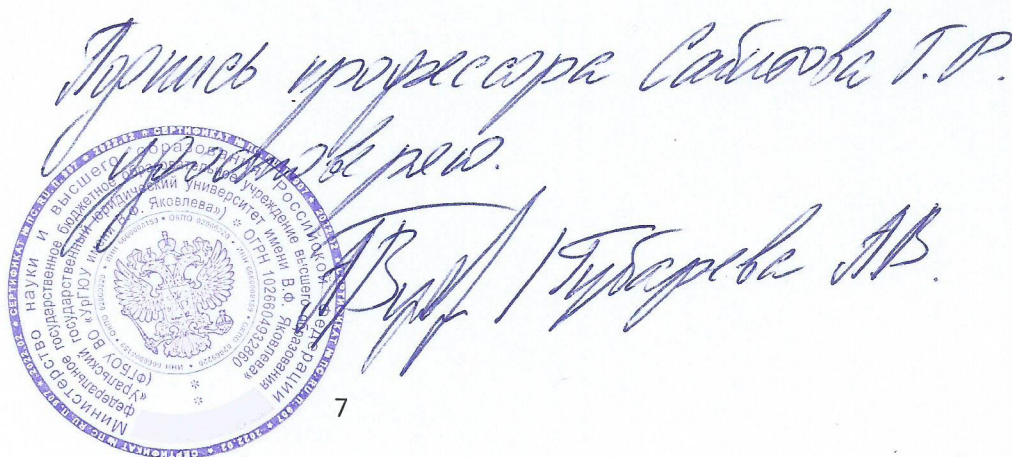 Подпись профессора Сабитова Т.Р.
удостоверяю.
/ Губарева А.В.
СЕРТИФИКАТ № ПС. RU. П. 907 * 2022.02 *
Министерство науки и высшего образования Российской Федерации
федеральное государственное бюджетное образовательное учреждение высшего образования
«Уральский государственный юридический университет имени В.Ф. Яковлева»
(ФГБОУ ВО «УрГЮУ имени В.Ф. Яковлева») * ОГРН 1026604932860
7